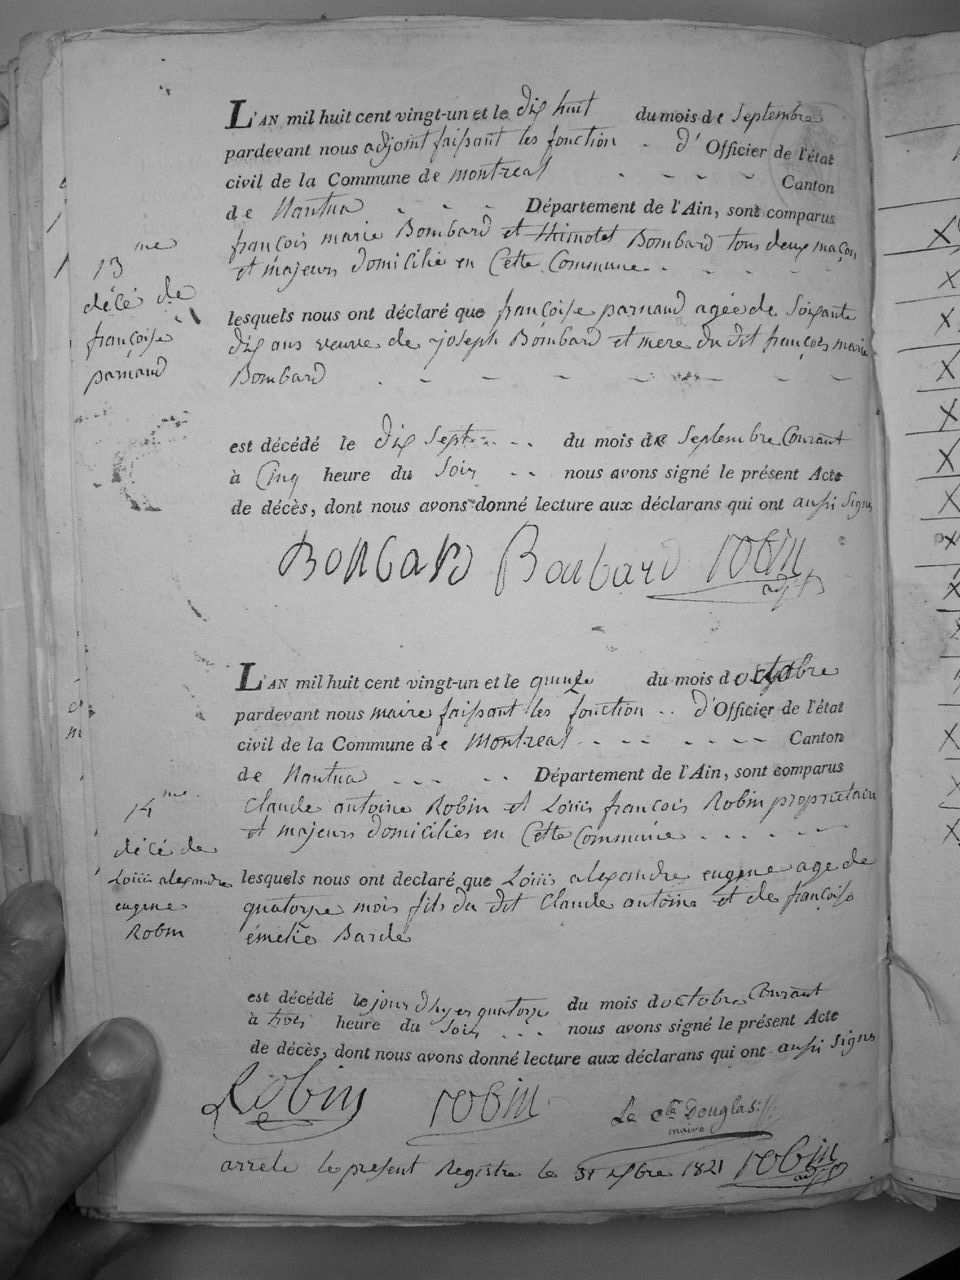 L'AN mil huit cent vingt-un et le dix huit du mois de Septembre
pardevant nous adjoint faisant les fonction d'Officier de l'état
civil de la Commune de montreal Canton
de Nantua Département de l'Ain, sont comparus
françois marie Bombard et thimotet Bombard tous deux maçon
et majeurs domicilié en Cette Commune
13me
décé de
françoise
parnaud
lesquels nous ont déclaré que françoise parnaud agée de Soixante
dix ans veuve de joseph Bombard et mere du dit françois marie
Bombard
est décédé le dix Sept du mois de Septembre Courant
à Cinq heure du Soir nous avons signé le présent Acte
de décès, dont nous avons donné lecture aux déclarans qui ont aussi Signe
BONBARD Bonbard robin
adjt
L'AN mil huit cent vingt-un et le quinze du mois d octobre
pardevant nous maire faisant les fonction d'Officier de l'état
civil de la Commune de Montreal Canton
de Nantua Département de l'Ain, sont comparus
Claude antoine Robin et Louis françois Robin proprietaire
et majeurs domiciliés en Cette Commune
14me
décé de
Louis alexandre
eugene
Robin
lesquels nous ont déclaré que Louis alexandre eugene age de
quatorze mois fils du dit Claude antoine et de françoise
émelie Barde
est décédé le jour d'hyer quatorze du mois d octobre Courant
à trois heure du Soir nous avons signé le présent Acte
de décès, dont nous avons donné lecture aux déclarans qui ont aussi Signe
Robin robin Le cte Douglas
maire
arrete le present Registre le 31 xbre 1821 robin
adjt